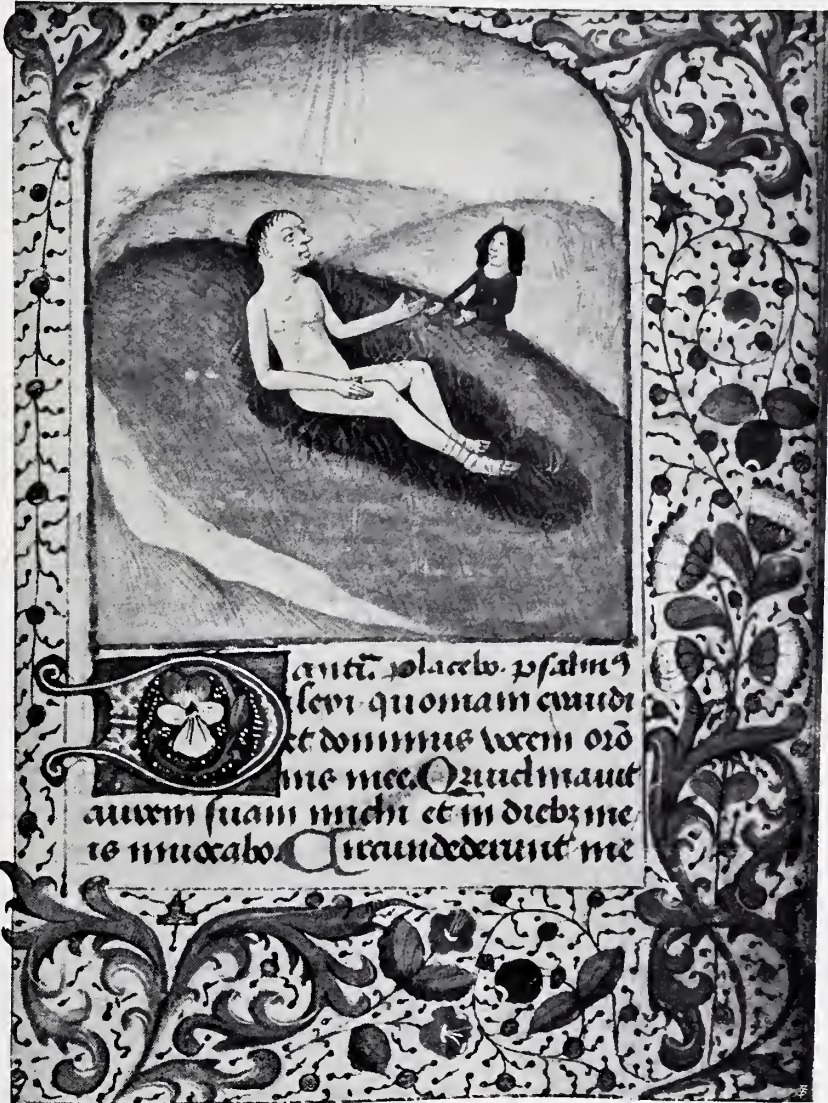 D antā. placebo. psalmꝰ
lexi quoniam exaudi
et dominus vocem orō
nis mee. Quia inclinauit
aurem suam michi et in diebꝫ me
is inuocabo. Circundederunt me